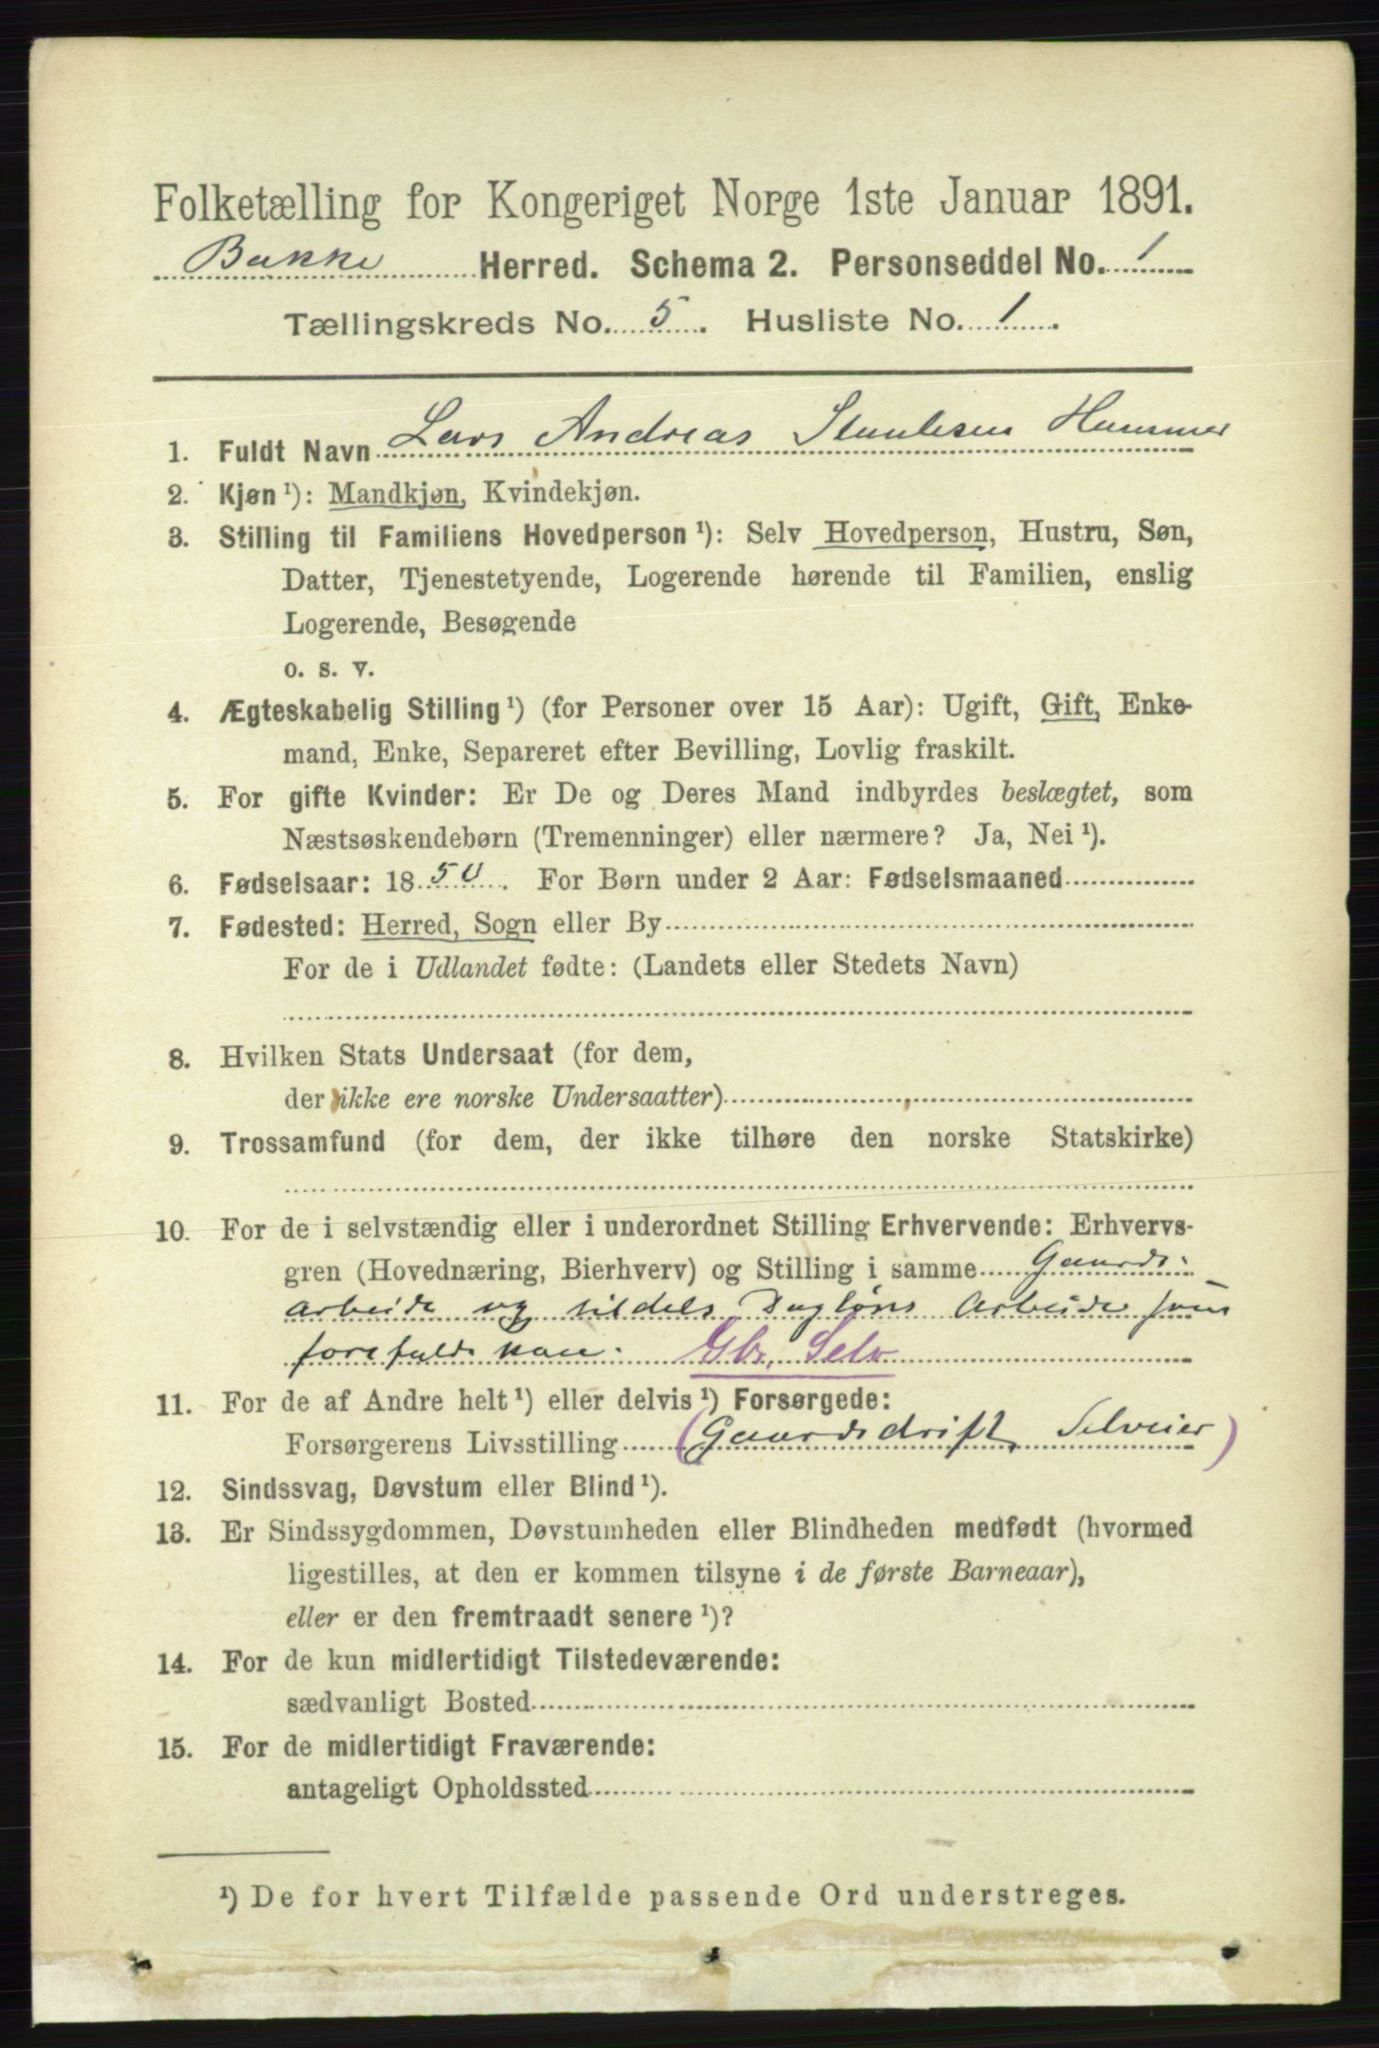 Folketælling for Kongeriget Norge 1ste Januar 1891.
Bakke Herred. Schema 2. Personseddel No. 1
Tællingskreds No. 5. Husliste No. 1.
1. Fuldt Navn Lars Andreas Hammer
2. Kjøn¹): Mandkjøn, Kvindekjøn.
3. Stilling til Familiens Hovedperson¹): Selv Hovedperson, Hustru, Søn,
Datter, Tjenestetyende, Logerende hørende til Familien, enslig
Logerende, Besøgende
o. s. v.
4. Ægteskabelig Stilling¹) (for Personer over 15 Aar): Ugift, Gift, Enke-
mand, Enke, Separeret efter Bevilling, Lovlig fraskilt.
5. For gifte Kvinder: Er De og Deres Mand indbyrdes beslægtet, som
Næstsøskendebørn (Tremenninger) eller nærmere? Ja, Nei¹).
6. Fødselsaar: 1850. For Børn under 2 Aar: Fødselsmaaned
7. Fødested: Herred, Sogn eller By
For de i Udlandet fødte: (Landets eller Stedets Navn)
8. Hvilken Stats Undersaat (for dem,
der ikke ere norske Undersaatter)
9. Trossamfund (for dem, der ikke tilhøre den norske Statskirke)
10. For de i selvstændig eller i underordnet Stilling Erhvervende: Erhvervs-
gren (Hovednæring, Bierhverv) og Stilling i samme Gaards-
arbeide og tildels Dagløns Arbeide som
forefalde kan. Gbr, Selv
11. For de af Andre helt¹) eller delvis¹) Forsørgede:
Forsørgerens Livsstilling (Gaardsdrift, Selveier)
12. Sindssvag, Døvstum eller Blind¹).
13. Er Sindssygdommen, Døvstumheden eller Blindheden medfødt (hvormed
ligestilles, at den er kommen tilsyne i de første Barneaar),
eller er den fremtraadt senere¹)?
14. For de kun midlertidigt Tilstedeværende:
sædvanligt Bosted
15. For de midlertidigt Fraværende:
antageligt Opholdssted
¹) De for hvert Tilfælde passende Ord understreges.